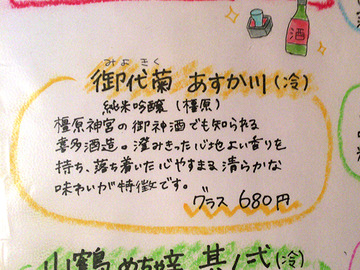 酒
みよきく
御代菊 あすか川(冷)
純米吟醸(橿原)
橿原神宮の御神酒でも知られる
喜多酒造。澄みきった心地よい香りを
持ち、落ち着いた心やすまる清らかな
味わいが特徴です。
グラス 680円
山鶴 めちゃ辛 其ノ弐(冷)